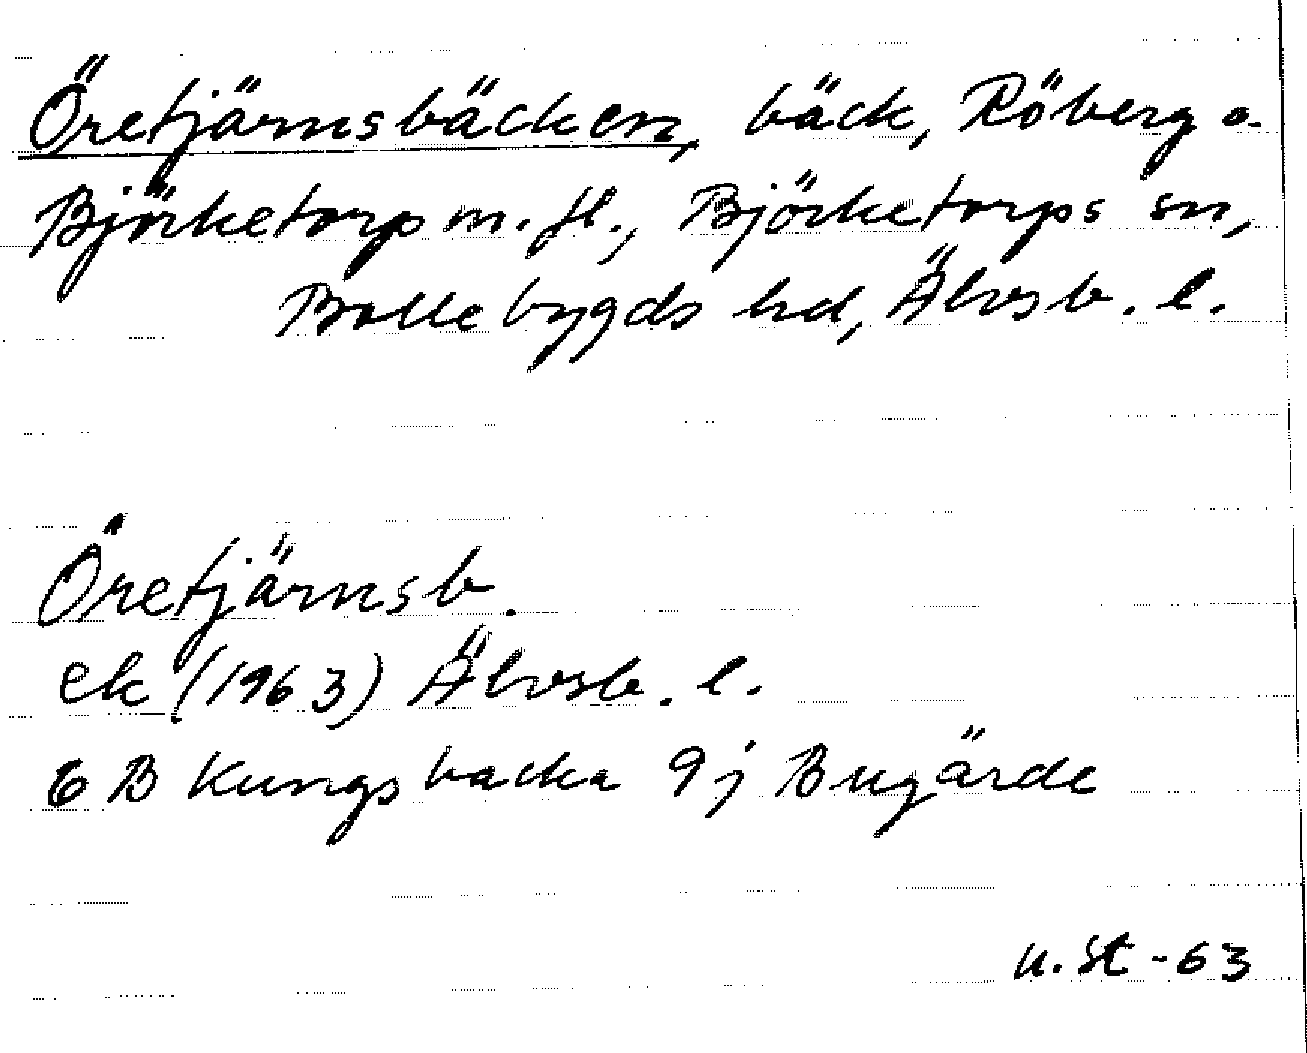 Öretjärnsbäcken, bäck, Röberg o.
Björketorp m. fl., Björketorps sn,
Bollebygds hd, Älvsb. l.
Öretjärnsb.
ek (1963) Älvsb. l.
6 B Kungsbacka 9j Bugärde
U. St -63